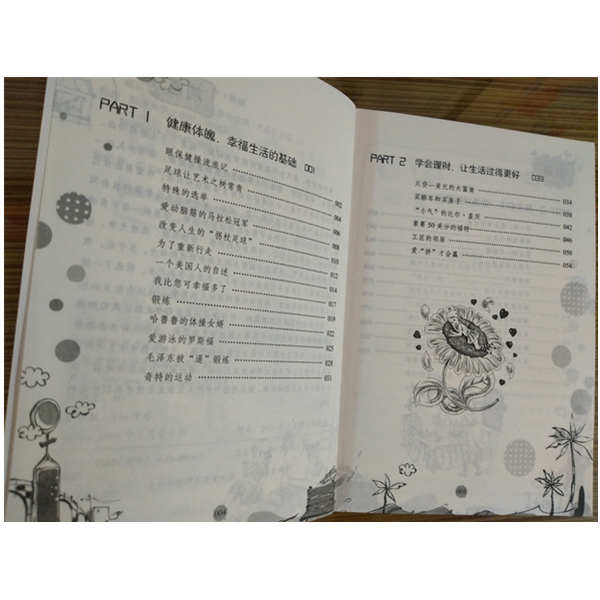 PART 1 健康体魄，幸福生活的基础 001
眼保健操流浪记 002
足球让艺术之树常青 004
特殊的选举 006
爱动脑筋的马拉松冠军 008
改变人生的“拐杖足球” 010
为了重新行走 012
一个美国人的自述 014
我比您可幸福多了 017
锻炼 019
哈鲁鲁的体操女婿 022
爱游泳的罗斯福 025
毛泽东被“逼”锻炼 028
奇特的运动 031
PART 2 学会理财，让生活过得更好 033
只登一美元的大富翁 034
买轿车和买房子 038
“小气”的比尔·盖茨 042
索要50美分的福特 046
工匠的邻居 050
爱“拼”才会赢 054